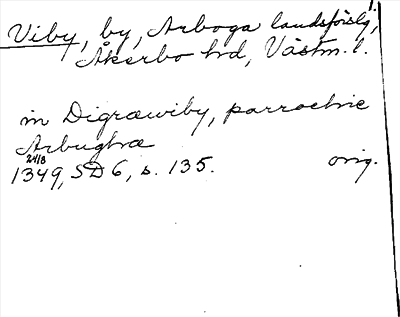 1.
Viby, by, Arboga landsförslg,
Åkerbo hd, Västm. l.
in Digræwiby, parrochie
Arbughæ
24/8
1349, SD 6, s. 135. orig.